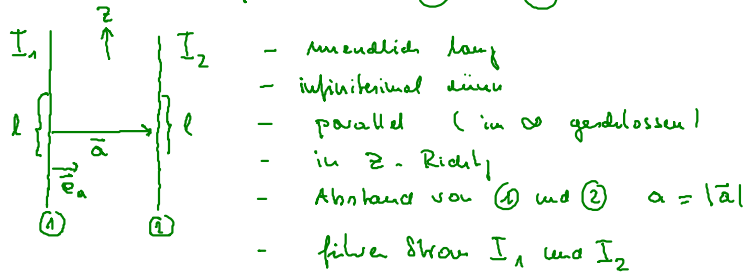 ① ②
z
I₁ I₂
l l
a⃗
e⃗ₐ
① ②
- unendlich lang
- infinitesimal dünn
- parallel (im ∞ geschlossen)
- in z-Richtg
- Abstand von ① und ② a = |a⃗|
- führen Strom I₁ und I₂